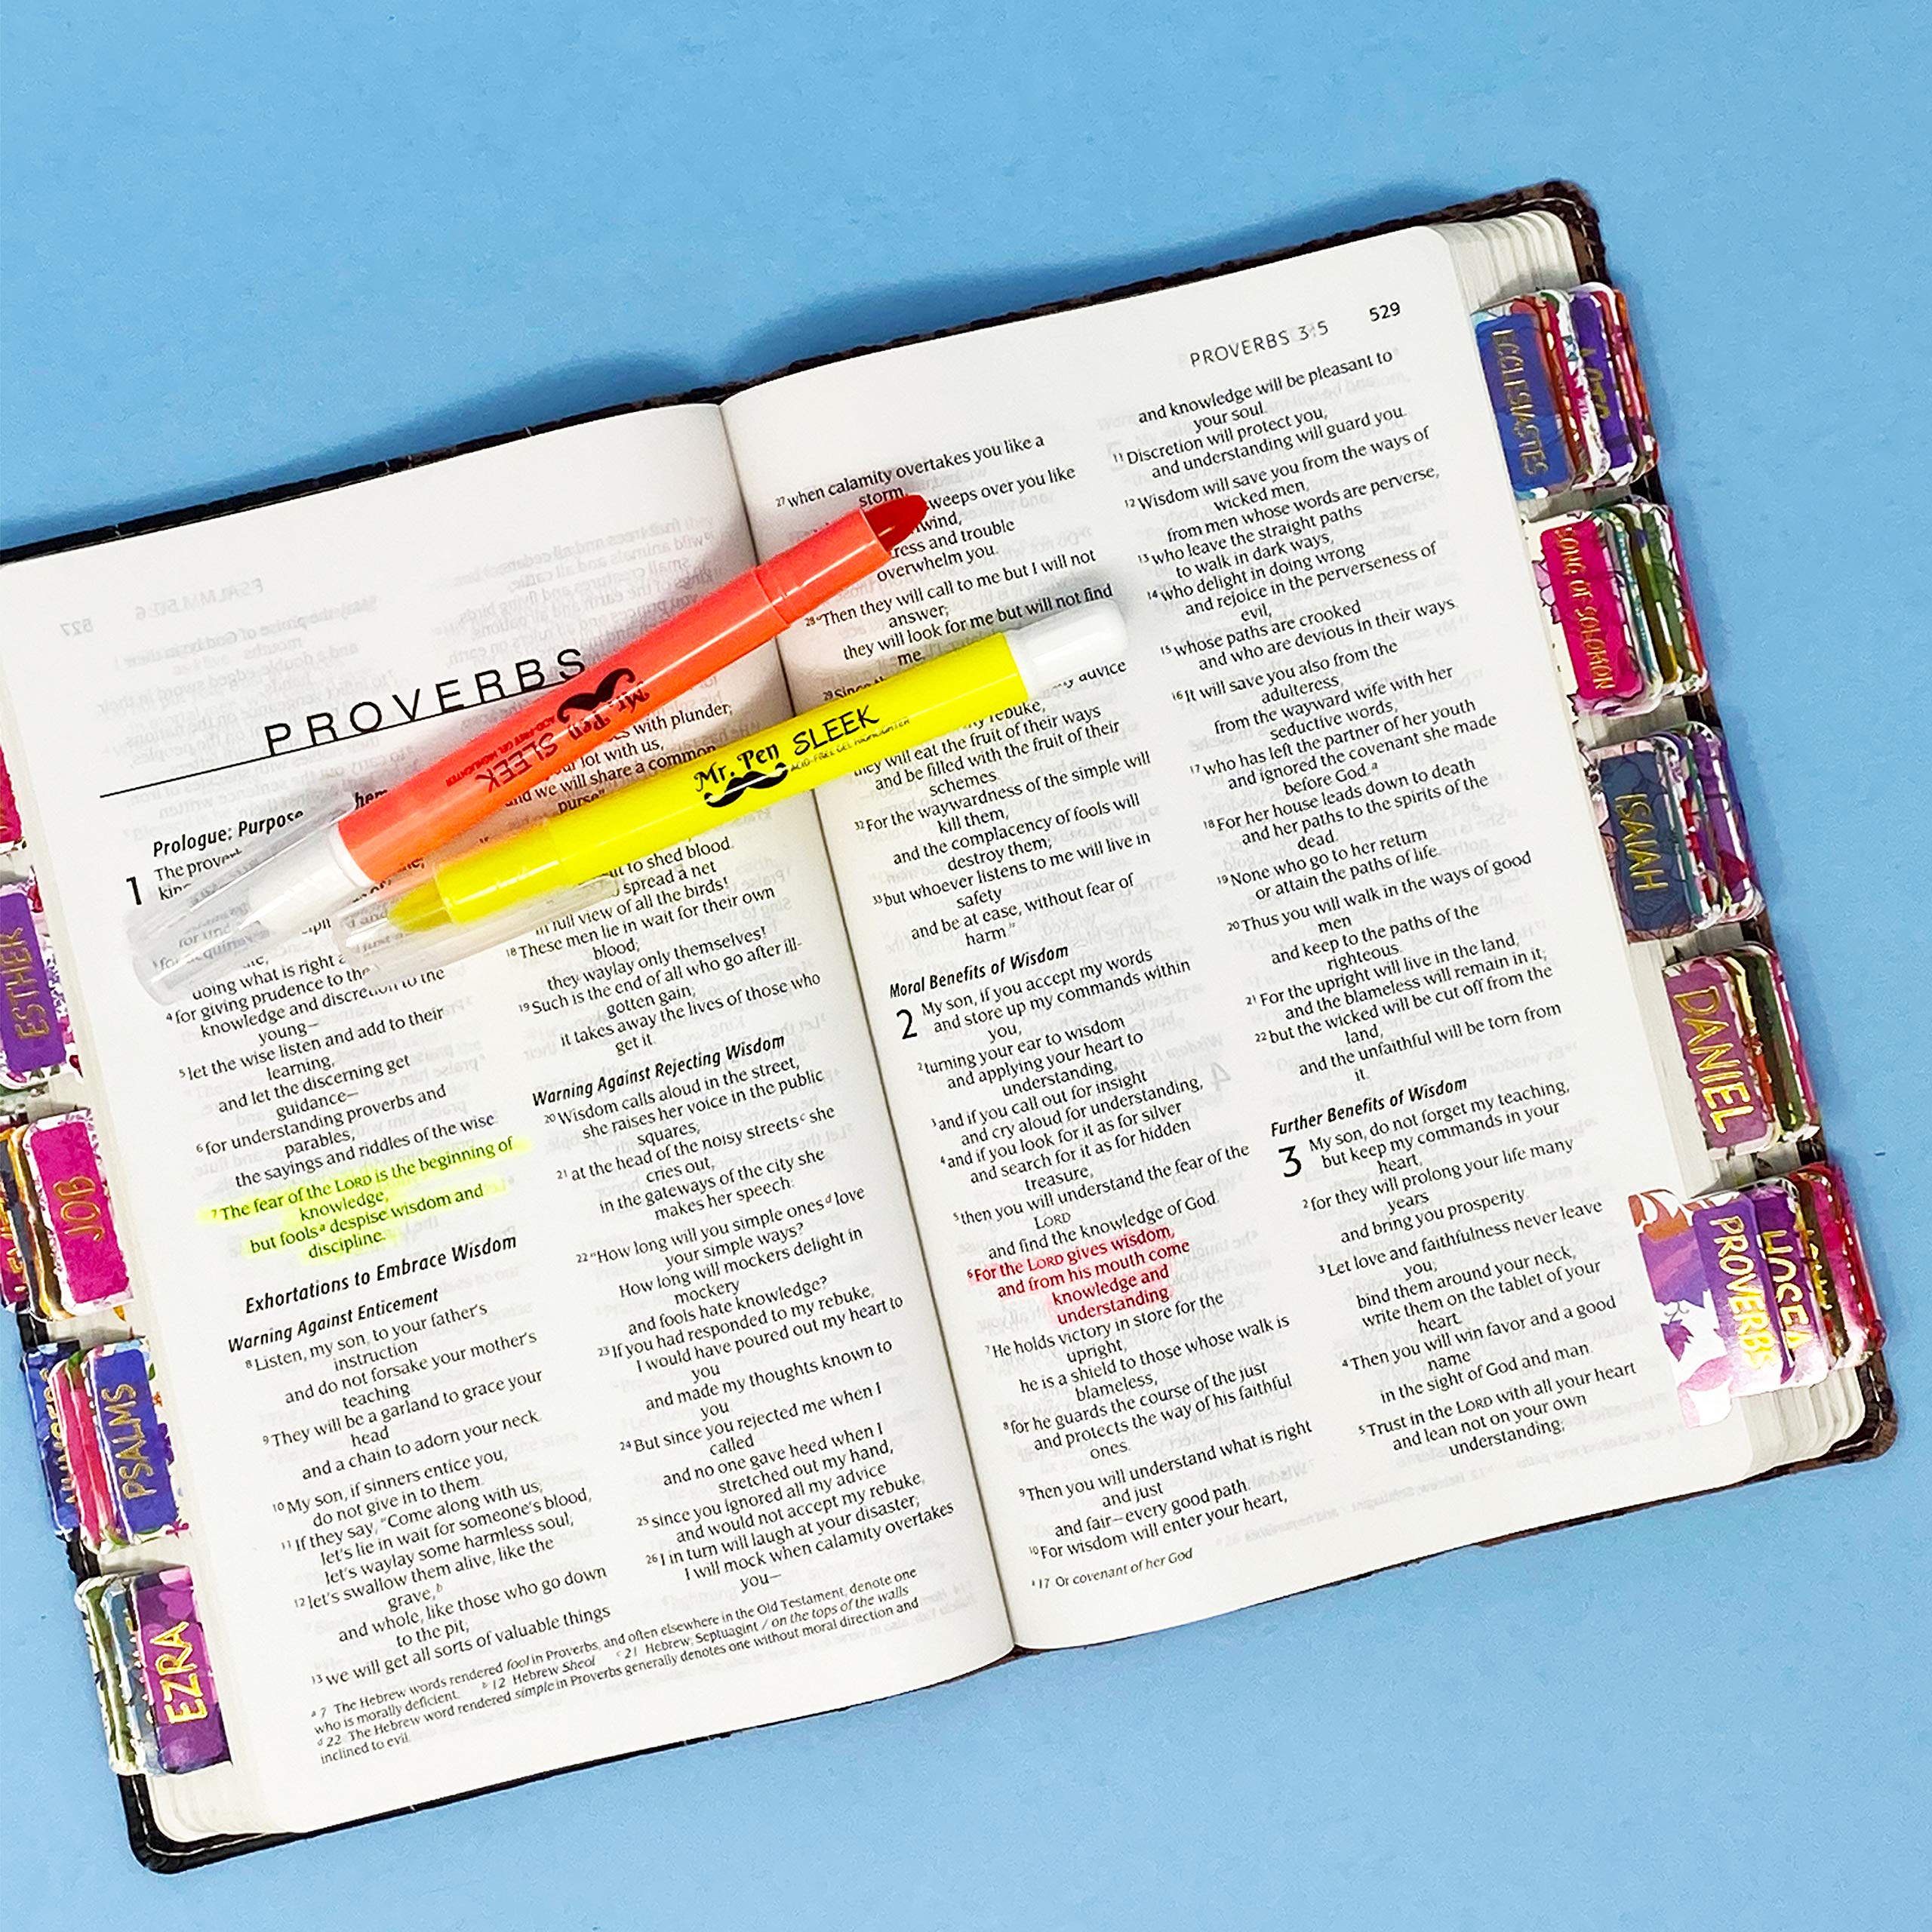 PROVERBS
Prologue: Purpose
1 The
doing what is right
4 for giving prudence to the
knowledge and discretion to the
young—
5 let the wise listen and add to their
learning,
and let the discerning get
guidance—
6 for understanding proverbs and
parables,
the sayings and riddles of the wise.
7 The fear of the LORD is the beginning of
knowledge,
but fools a despise wisdom and
discipline.
Exhortations to Embrace Wisdom
Warning Against Enticement
8 Listen, my son, to your father's
instruction
and do not forsake your mother's
teaching
9 They will be a garland to grace your
head
and a chain to adorn your neck.
10 My son, if sinners entice you,
do not give in to them.
11 If they say, "Come along with us;
let's lie in wait for someone's blood,
let's waylay some harmless soul;
12 let's swallow them alive, like the
grave, b
and whole, like those who go down
to the pit;
13 we will get all sorts of valuable things
with plunder;
lot with us,
and we will share a common
purse"
to shed blood.
spread a net
in full view of all the birds!
18 These men lie in wait for their own
blood;
they waylay only themselves!
19 Such is the end of all who go after ill-
gotten gain;
it takes away the lives of those who
get it.
Warning Against Rejecting Wisdom
20 Wisdom calls aloud in the street,
she raises her voice in the public
squares;
21 at the head of the noisy streets c she
cries out,
in the gateways of the city she
makes her speech:
22 "How long will you simple ones d love
your simple ways?
How long will mockers delight in
mockery
and fools hate knowledge?
23 If you had responded to my rebuke,
I would have poured out my heart to
you
and made my thoughts known to
you
24 But since you rejected me when I
called
and no one gave heed when I
stretched out my hand,
25 since you ignored all my advice
and would not accept my rebuke,
26 I in turn will laugh at your disaster;
I will mock when calamity overtakes
you—
a 7 The Hebrew words rendered fool in Proverbs, and often elsewhere in the Old Testament, denote one
who is morally deficient. b 12 Hebrew Sheol c 21 Hebrew; Septuagint / on the tops of the walls
d 22 The Hebrew word rendered simple in Proverbs generally denotes one without moral direction and
inclined to evil.
PROVERBS 3:5 529
27 when calamity overtakes you like a
storm,
weeps over you like
wind,
ress and trouble
overwhelm you.
28 "Then they will call to me but I will not
answer;
they will look for me but will not find
me.
29 Since
advice
rebuke,
they will eat the fruit of their ways
and be filled with the fruit of their
schemes.
32 For the waywardness of the simple will
kill them,
and the complacency of fools will
destroy them;
33 but whoever listens to me will live in
safety
and be at ease, without fear of
harm."
Moral Benefits of Wisdom
2 My son, if you accept my words
and store up my commands within
you,
2 turning your ear to wisdom
and applying your heart to
understanding,
3 and if you call out for insight
and cry aloud for understanding,
4 and if you look for it as for silver
and search for it as for hidden
treasure,
5 then you will understand the fear of the
LORD
and find the knowledge of God.
6 For the LORD gives wisdom,
and from his mouth come
knowledge and
understanding
7 He holds victory in store for the
upright,
he is a shield to those whose walk is
blameless,
8 for he guards the course of the just
and protects the way of his faithful
ones.
9 Then you will understand what is right
and just
and fair—every good path.
10 For wisdom will enter your heart,
a 17 Or covenant of her God
and knowledge will be pleasant to
your soul.
11 Discretion will protect you,
and understanding will guard you.
12 Wisdom will save you from the ways of
wicked men,
from men whose words are perverse,
13 who leave the straight paths
to walk in dark ways,
14 who delight in doing wrong
and rejoice in the perverseness of
evil,
15 whose paths are crooked
and who are devious in their ways.
16 It will save you also from the
adulteress,
from the wayward wife with her
seductive words,
17 who has left the partner of her youth
and ignored the covenant she made
before God. a
18 For her house leads down to death
and her paths to the spirits of the
dead.
19 None who go to her return
or attain the paths of life.
20 Thus you will walk in the ways of good
men
and keep to the paths of the
righteous.
21 For the upright will live in the land,
and the blameless will remain in it;
22 but the wicked will be cut off from the
land,
and the unfaithful will be torn from
it.
Further Benefits of Wisdom
3 My son, do not forget my teaching,
but keep my commands in your
heart,
2 for they will prolong your life many
years
and bring you prosperity.
3 Let love and faithfulness never leave
you;
bind them around your neck,
write them on the tablet of your
heart.
4 Then you will win favor and a good
name
in the sight of God and man.
5 Trust in the LORD with all your heart
and lean not on your own
understanding;
Mr. Pen SLEEK
ACID-FREE GEL HIGHLIGHTER
Mr. Pen SLEEK
ACID-FREE GEL HIGHLIGHTER
ESTHER
JOB
PSALMS
EZRA
ECCLESIASTES
SONG OF SOLOMON
ISAIAH
DANIEL
PROVERBS
HOSEA